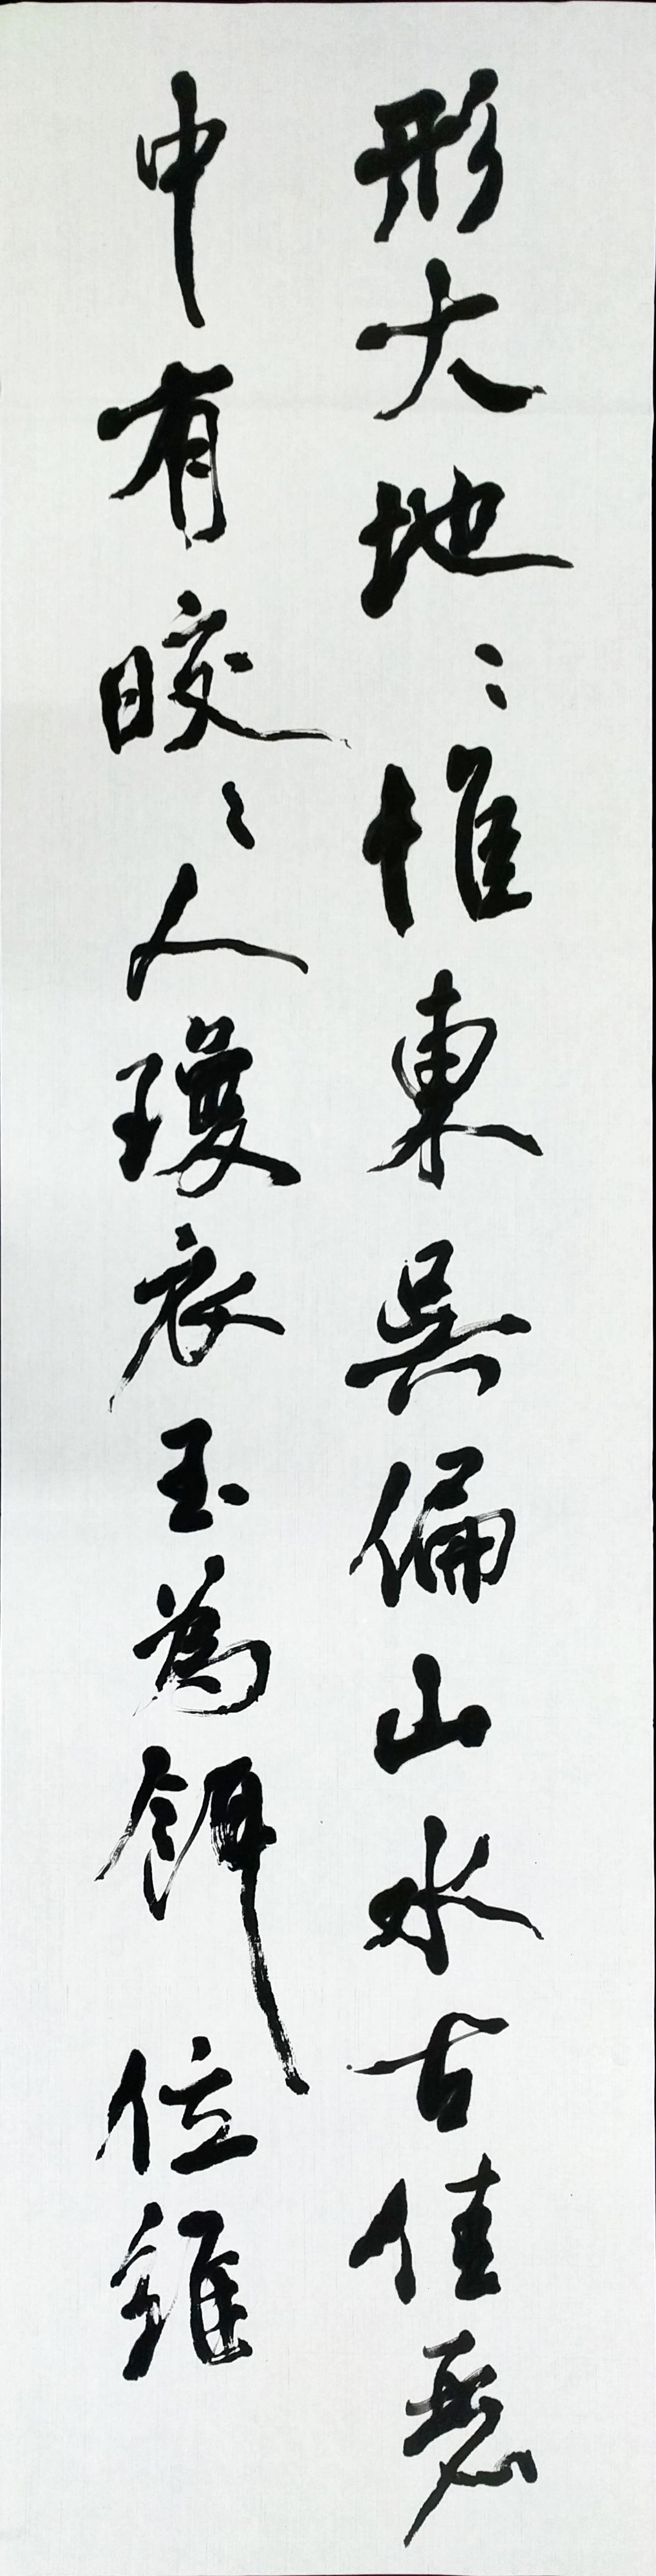 形大地々惟東吳偏山水古佳麗
中有皎々人瓊衣玉為餌位維